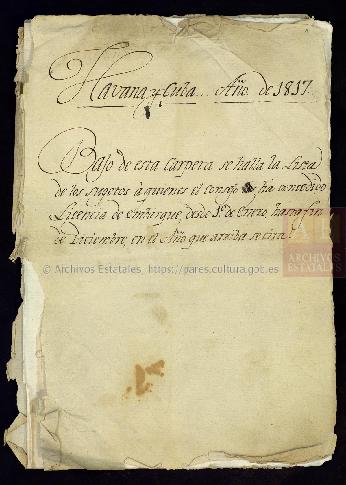 Havana y Cuba. Año de 1817.
Bajo de esta Carpeta se halla la Lista
de los sugetos à quienes el Consejo ha concedido
Licencia de embarque, desde 1º de Enero, hasta fin
de Diciembre, en el Año que arriba se cita.
© Archivos Estatales, https://pares.cultura.gob.es
ARCHIVOS
ESTATALES